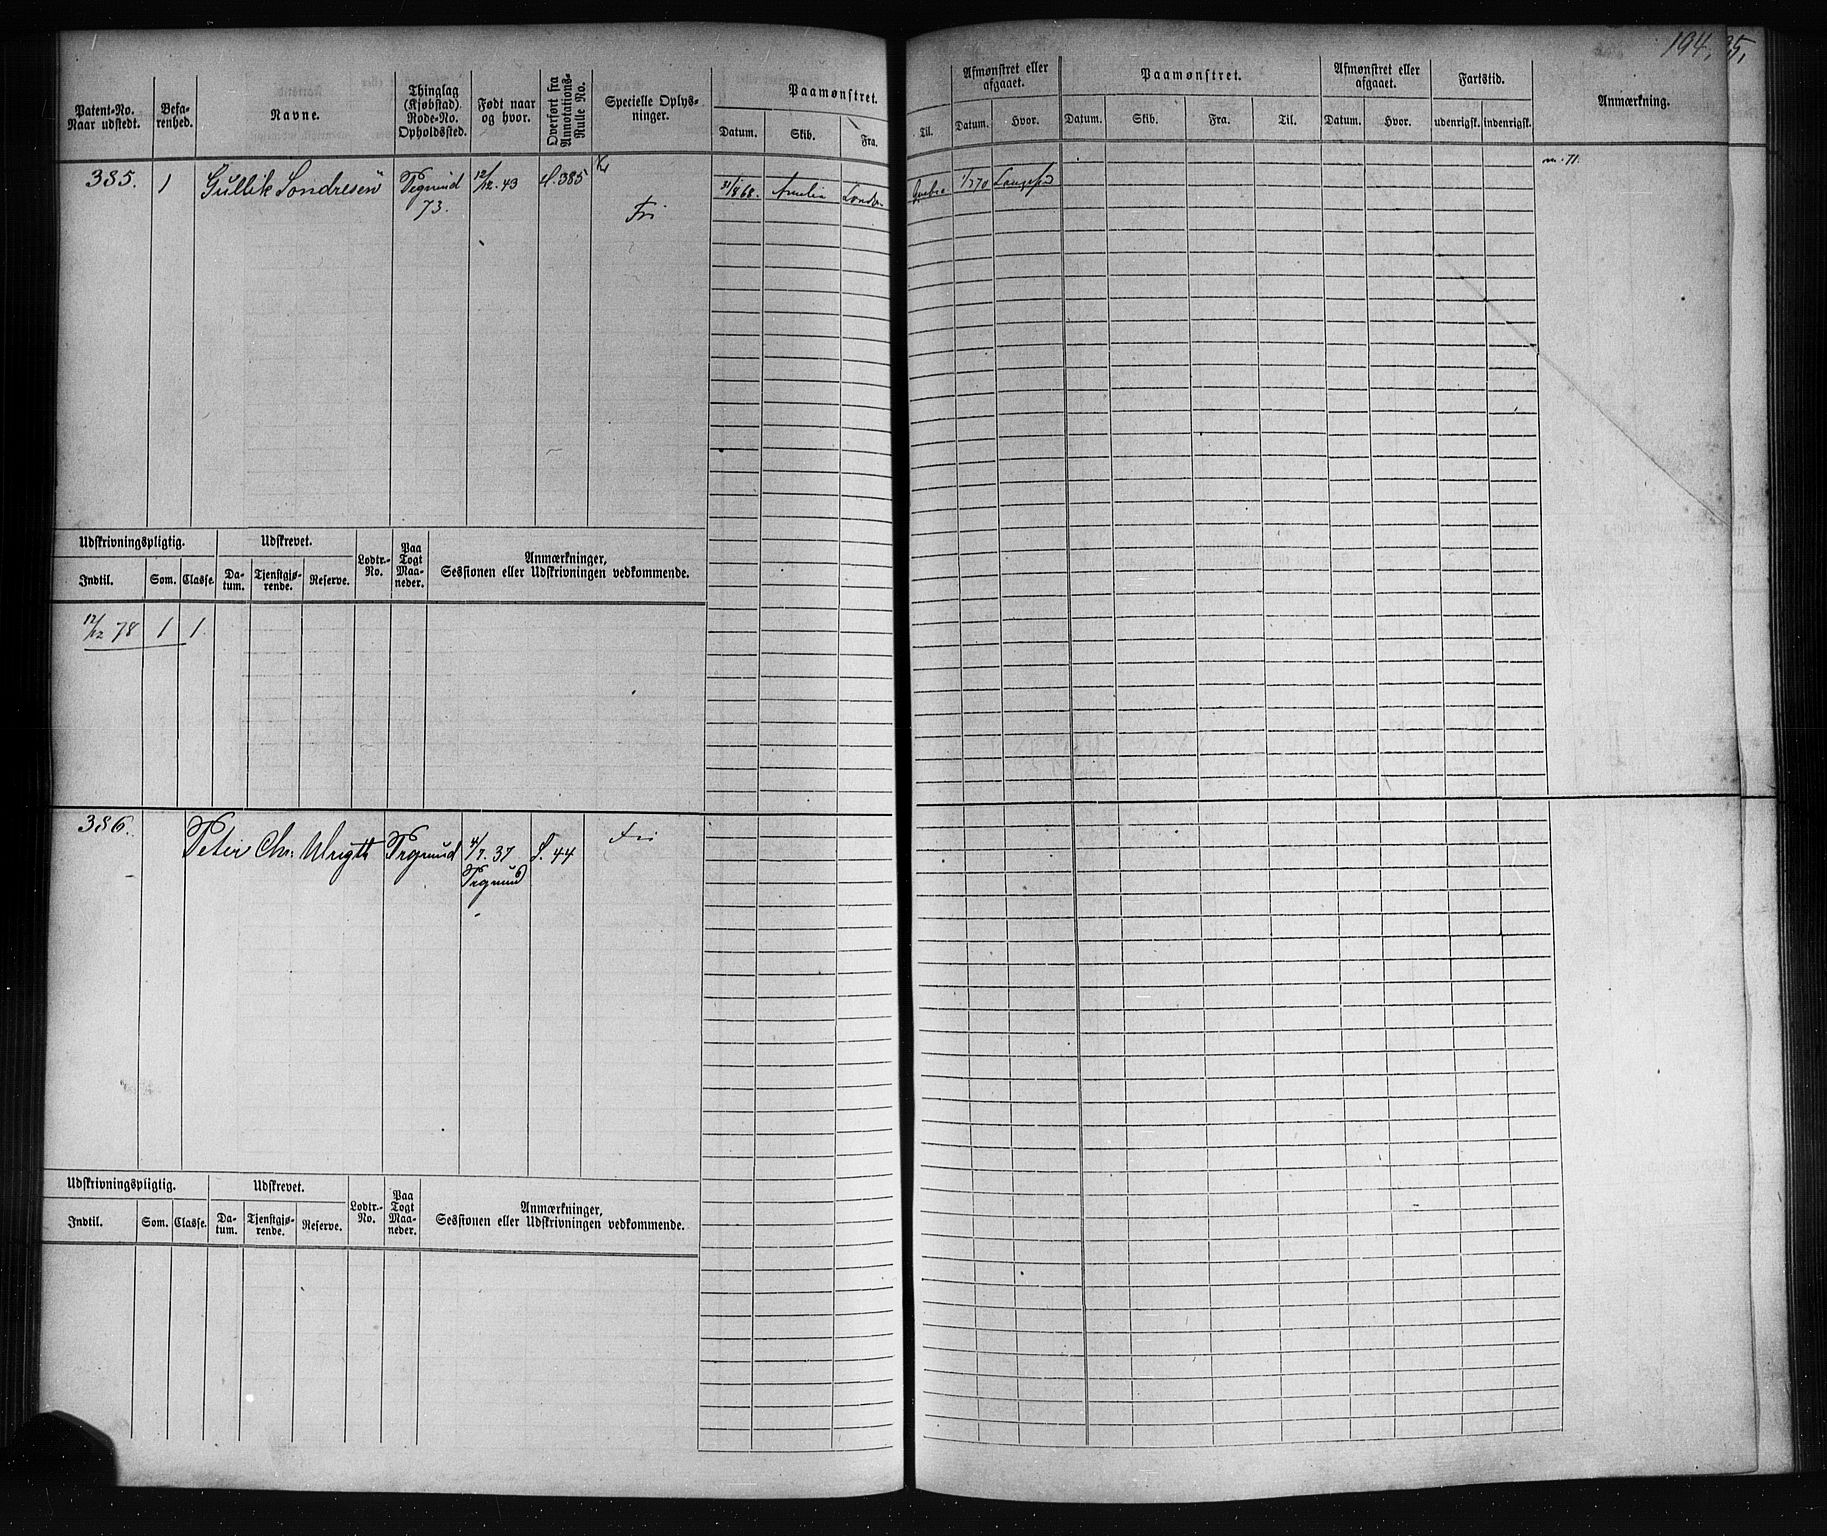 194,
Patent-No. Naar udstedt.
Befarenhed.
Navne.
Thinglag (Kjøbstad). Rode-No. Opholdssted.
Født naar og hvor.
Overført fra Annotations-Rulle No.
Specielle Oplysninger.
Paamønstret.
Datum. Skib. Fra.
Til.
Afmønstret eller afgaaet.
Datum. Hvor.
Paamønstret.
Datum. Skib. Fra. Til.
Afmønstret eller afgaaet.
Datum. Hvor.
Fartstid.
udenrigsk. indenrigsk.
Anmærkning.
385. 1 Gullik Sondresen 12/12. 43 385
73. Fri
31/8 68. Amelia London
1/2 70
Udskrivningspligtig. Udskrevet. Lodtr.-No. Paa Togt Maaneder. Anmærkninger, Sessionen eller Udskrivningen vedkommende.
Indtil. Som. Classe. Datum. Tjenstgjørende. Reserve.
12/12 78 1 1.
386. Peter Chr. 4/7. 37 44 Fri
Udskrivningspligtig. Udskrevet. Lodtr.-No. Paa Togt Maaneder. Anmærkninger, Sessionen eller Udskrivningen vedkommende.
Indtil. Som. Classe. Datum. Tjenstgjørende. Reserve.